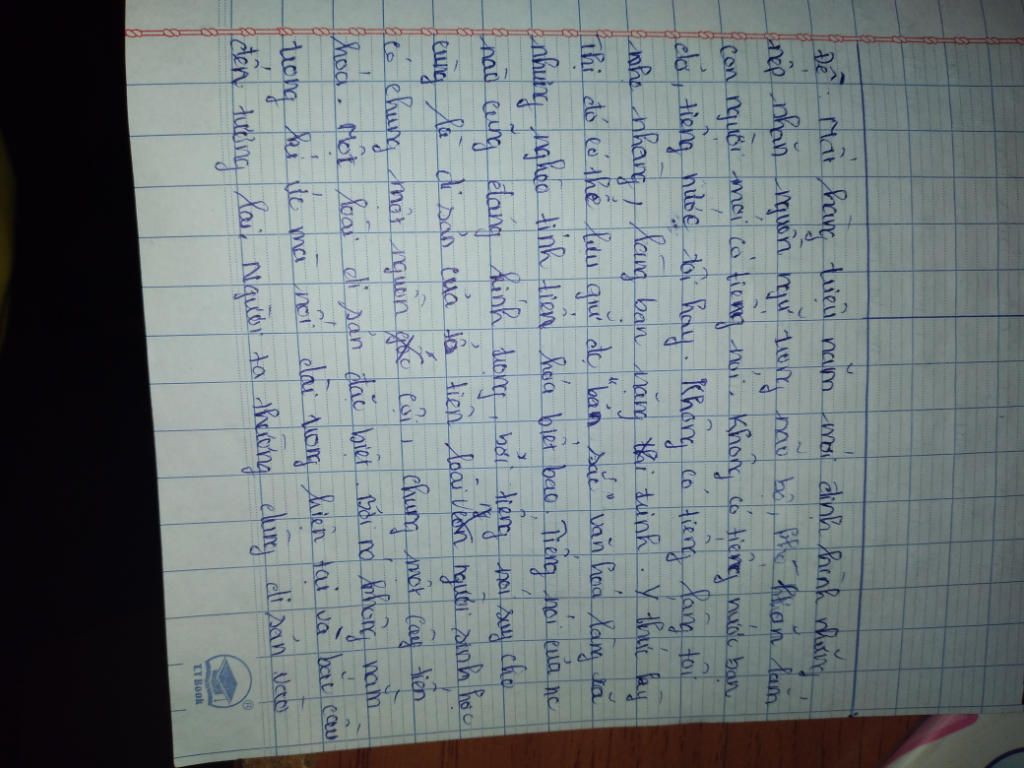 Đề: Mất hàng triệu năm mới định hình những
nếp nhăn nguồn ngữ trong mũ bộ, khó khăn lắm
con người mới có tiếng nói. Không có tiếng nước bạn
đó, tiếng nước tôi hay. Không có tiếng làng tôi
nhẹ nhàng, làng bạn nặng trịnh. Ý thức hay
thì đó có thể lưu giữ đc "bản sắc" văn hóa làng xã
nhưng nghĩa tình tiến hóa biết bao. Tiếng nói của nc
nào cũng đáng kính trọng, bởi tiếng nói suy cho
cùng là di sản của tổ tiên loài người sinh học
có chung một nguồn cội, chung một cây tiến
hóa. Một loài di sản đặc biệt. Bởi nó không nằm
trong kí ức mà nối dài trong hiện tại và bắc cầu
đến tương lai. Người ta thường dùng di sản vào
KT Book
®